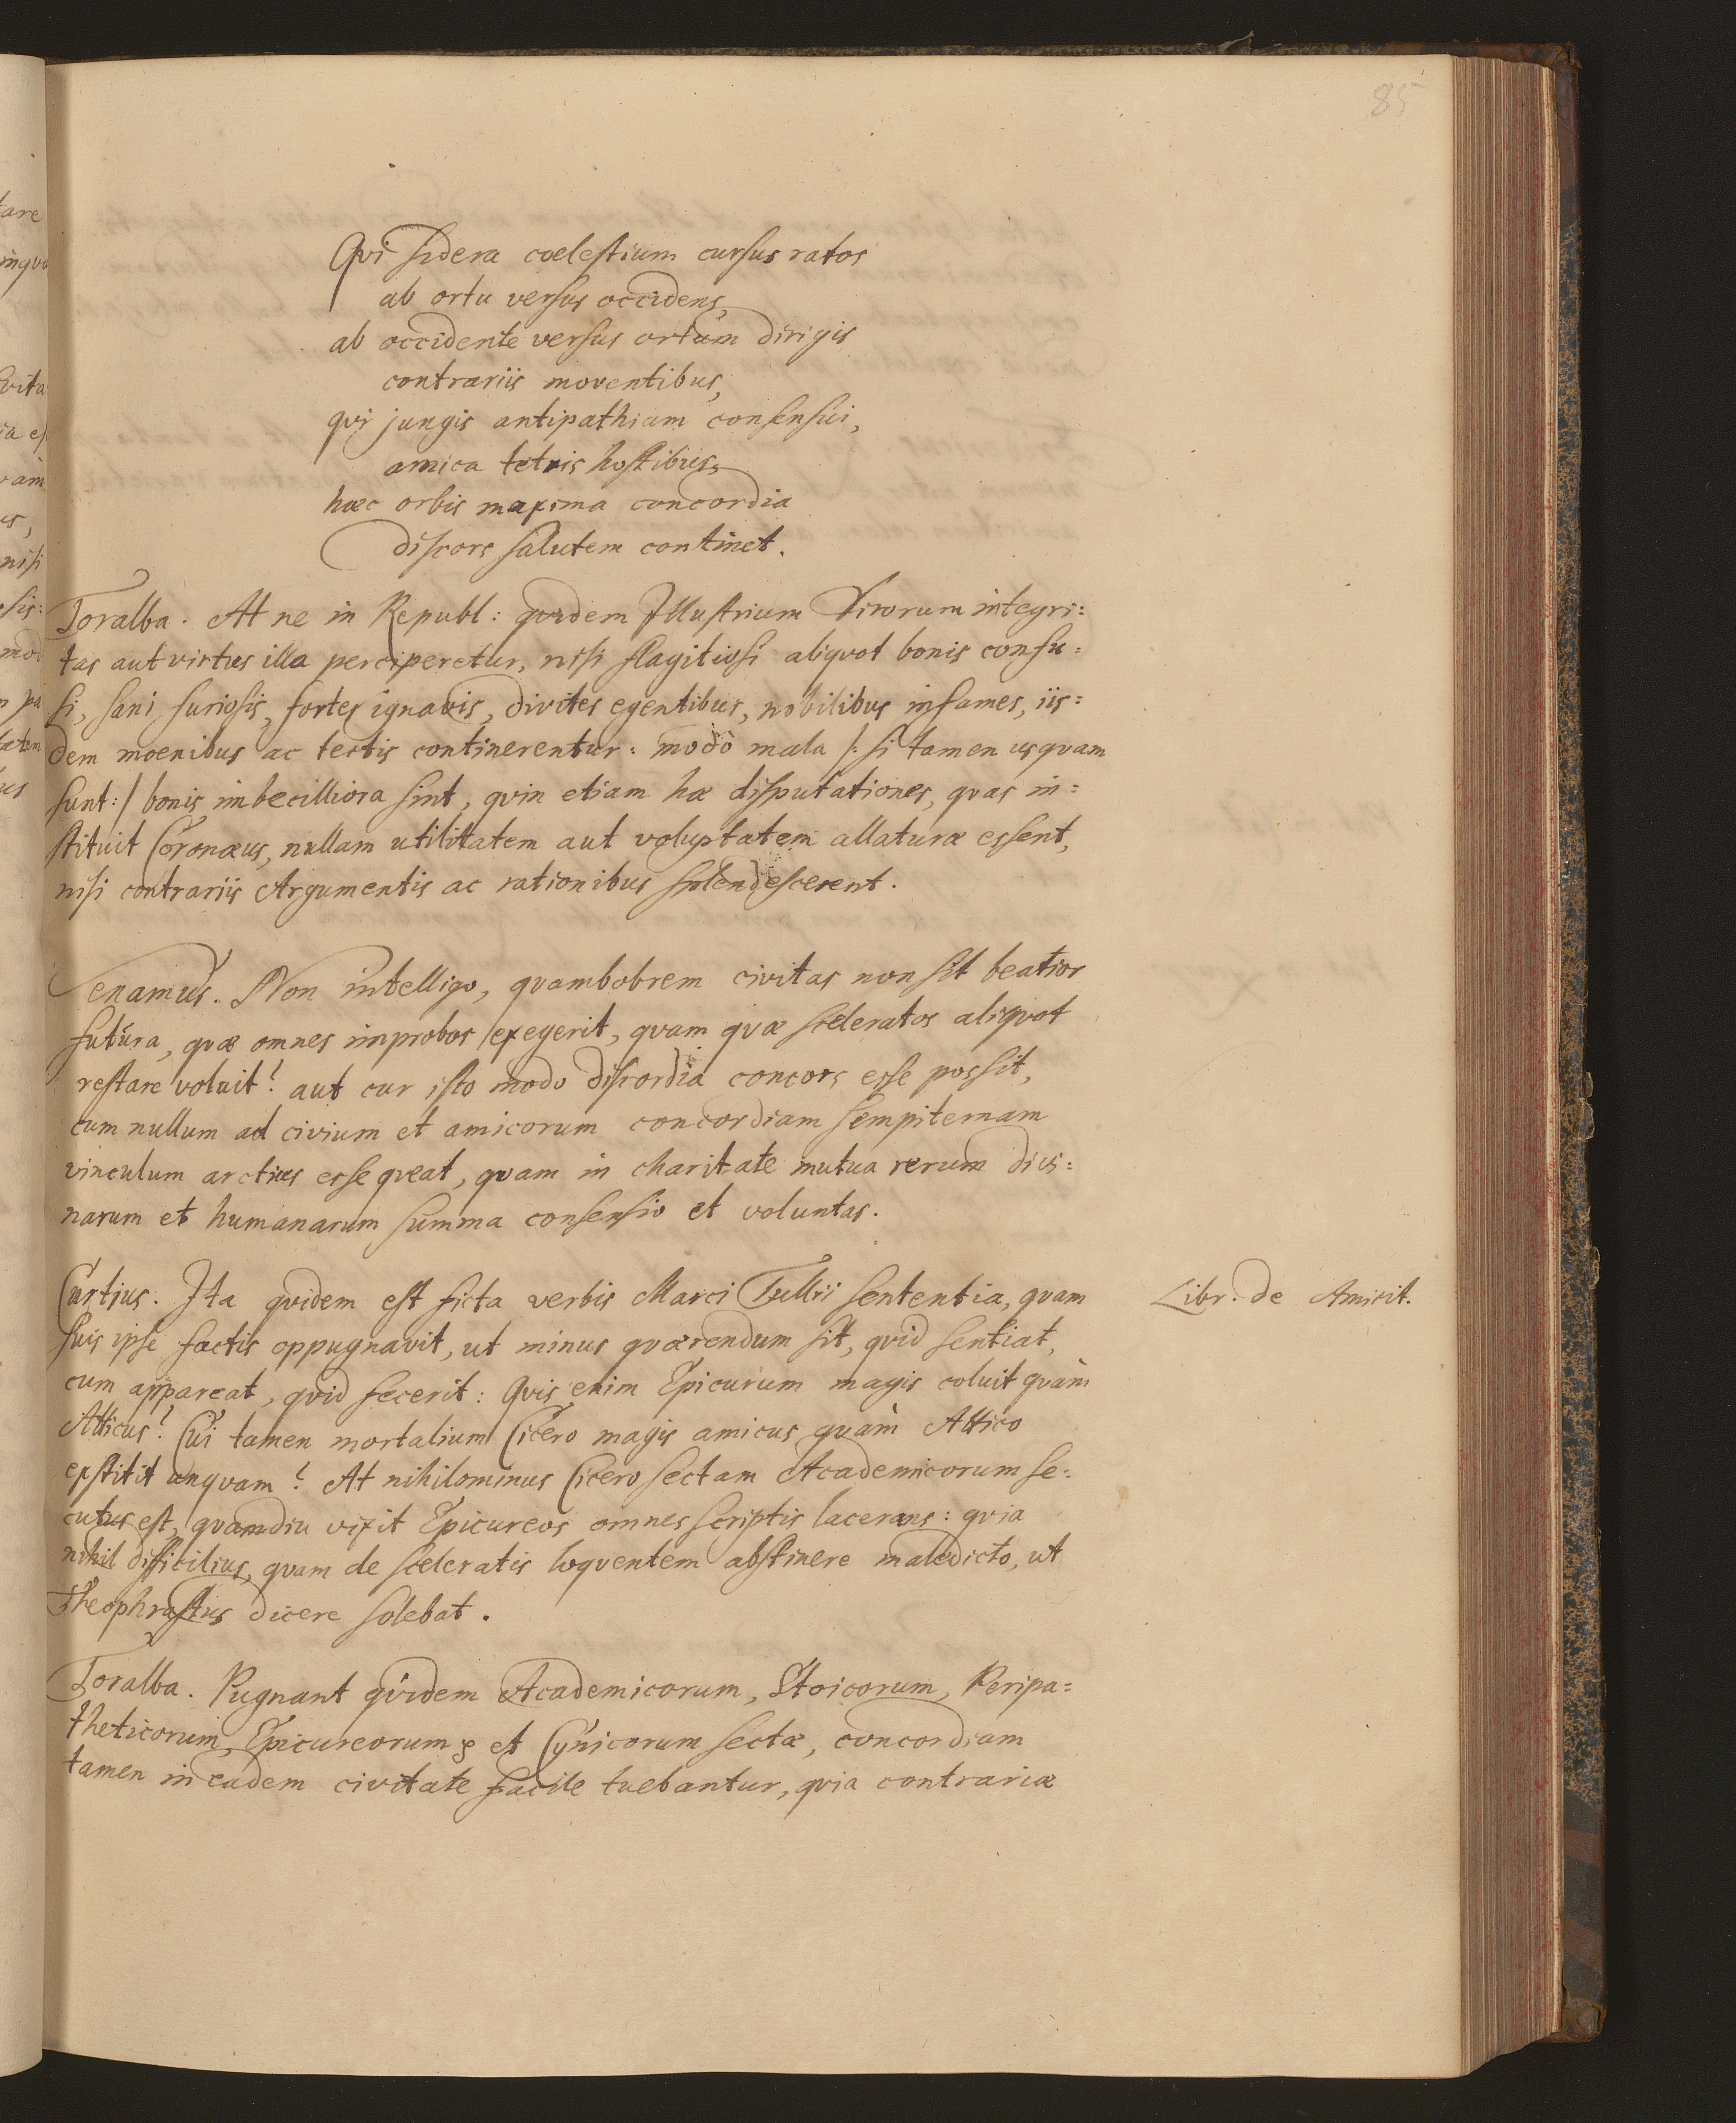 85
Qvi sidera coelestium cursus ratos
ab ortu versus occidens,
ab occidente versus ortum dirigis
contrariis moventibus,
qvi jungis antipathiam consensui,
amica tetris hostibus,
hæc orbis maxima concordia
discors salutem continet.
Toralba. At ne in Republ: qvidem Illustrium Virorum integri:
tas aut virtus illa perciperetur, nisi flagitiosi aliqvot bonis confu:
si, sani furiosis, fortes ignavis, divites egentibus, nobilibus infames, iis:
dem moenibus ac tectis continerentur: modò mala /: si tamen usqvam
sunt :/ bonis imbecilliora sint, qvin etiam hæ disputationes, qvas in:
stituit Coronæus, nullam utilitatem aut voluptatem allaturæ essent,
nisi contrariis Argumentis ac rationibus splendescerent.
Senamus. Non intelligo, qvambobrem civitas non sit beatior
futura, qvæ omnes improbos exegerit, qvam qvæ sceleratos aliqvot
restare voluit? aut cur isto modo discordia concors esse possit,
cum nullum ad civium et amicorum concordiam sempiternam
vinculum arctius esse qveat, qvam in charitate mutua rerum divi:
narum et humanarum summa consensio et voluntas.
Curtius. Ita qvidem est ficta verbis Marci Tullii sententia, qvam
Libr. de Amicit.
suis ipse factis oppugnavit, ut minus qværendum sit, qvid sentiat,
cum appareat, qvid fecerit: Qvis enim Epicurum magis coluit qvàm
Atticus? Cui tamen mortalium Cicero magis amicus qvàm Attico
exstitit unqvam? At nihilominus Cicero sectam Academicorum se:
cutus est, qvamdiu vixit Epicureos omnes scriptis lacerans: qvia
nihil difficilius, qvam de sceleratis loqventem abstinere maledicto, ut
Theophrastus dicere solebat.
Toralba. Pugnant qvidem Academicorum, Stoicorum, Peripa=
theticorum, Epicureorum et Cynicorum sectæ, concordiam
tamen in eadem civitate facile tuebantur, qvia contrariæ